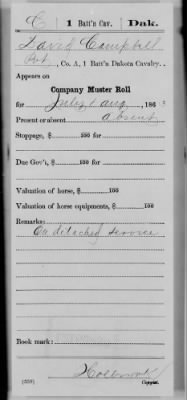 C | 1 Batt'n Cav. | Dak.
David Campbell
Pvt, Co. A, 1 Batt'n Dakota Cavalry.
Appears on
Company Muster Roll
for July & Aug, 1863
Present or absent Absent
Stoppage, $ 100 for
Due Gov't, $ 100 for
Valuation of horse, $ 100
Valuation of horse equipments, $ 100
Remarks:
On detached service
Book mark:
Holbrook
(559) Copyist.